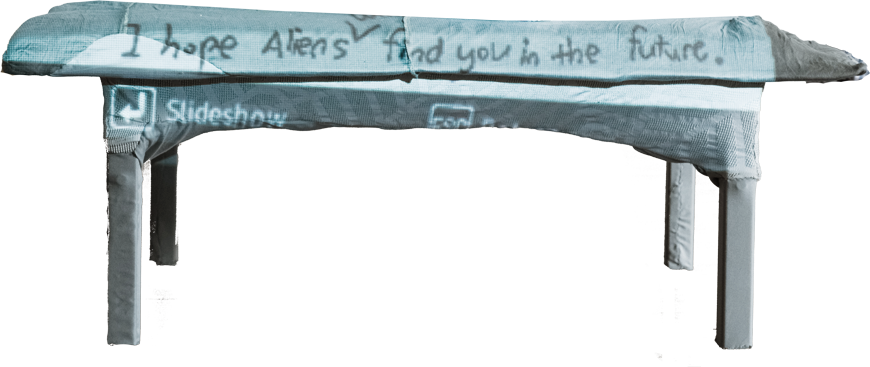 I hope Aliens find you in the future.
Slideshow